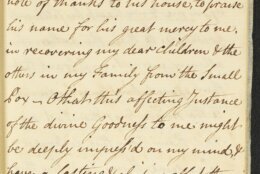 note of thanks to his house, to praise
his name for his great mercy to me,
in recovering my dear Children & the
others in my Family from the Small
Pox – O that this affecting Instance
of the divine Goodness to me might
be deeply impress'd on my mind, &
have a lasting &